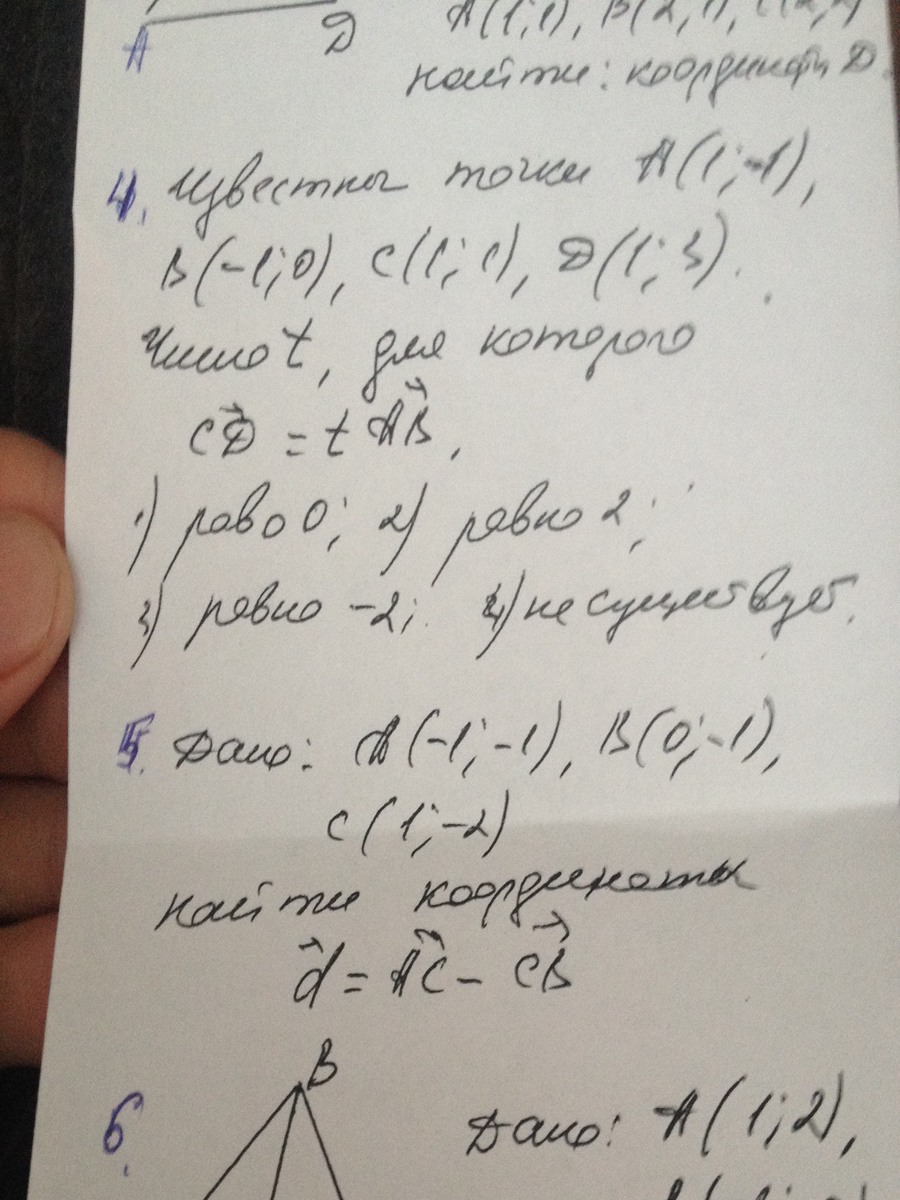 A D
A(1;1), B(2;1), C(2;2)
найти: координаты D.
4. Известны точки A(1;-1),
B(-1;0), C(1;1), D(1;3).
Число t, для которого
CD = t AB,
1) раво 0; 2) равно 2;
3) равно -2; 4) не существует.
5. Дано: A(-1;-1), B(0;-1),
C(1;-2)
найти координаты
d = AC - CB
B
6. Дано: A(1;2),